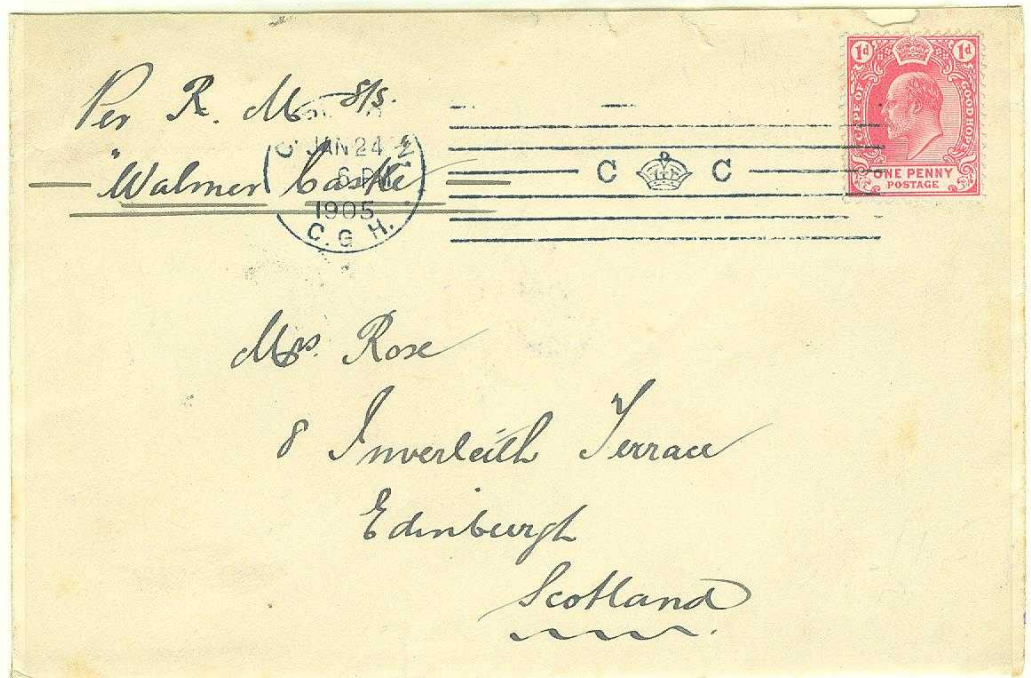 Per R. M. S/S.
"Walmer Castle"
JAN 24
6 PM
1905
C. G. H.
2
C C
1d 1d
CAPE OF GOOD HOPE
ONE PENNY
POSTAGE
Mrs. Rose
8 Inverleith Terrace
Edinburgh
Scotland